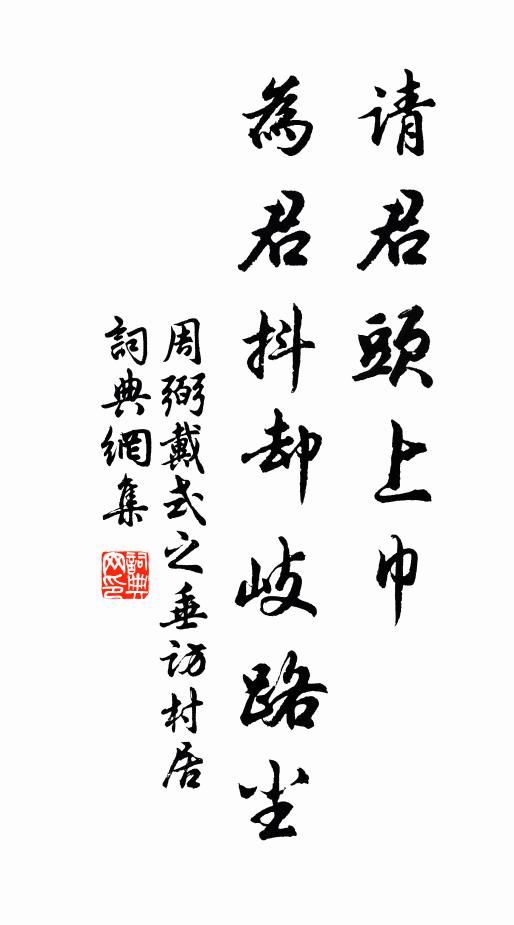 请君頭上巾
為君抖却歧路尘
周弼戴式之垂访村居
詞典網集
詞典网印